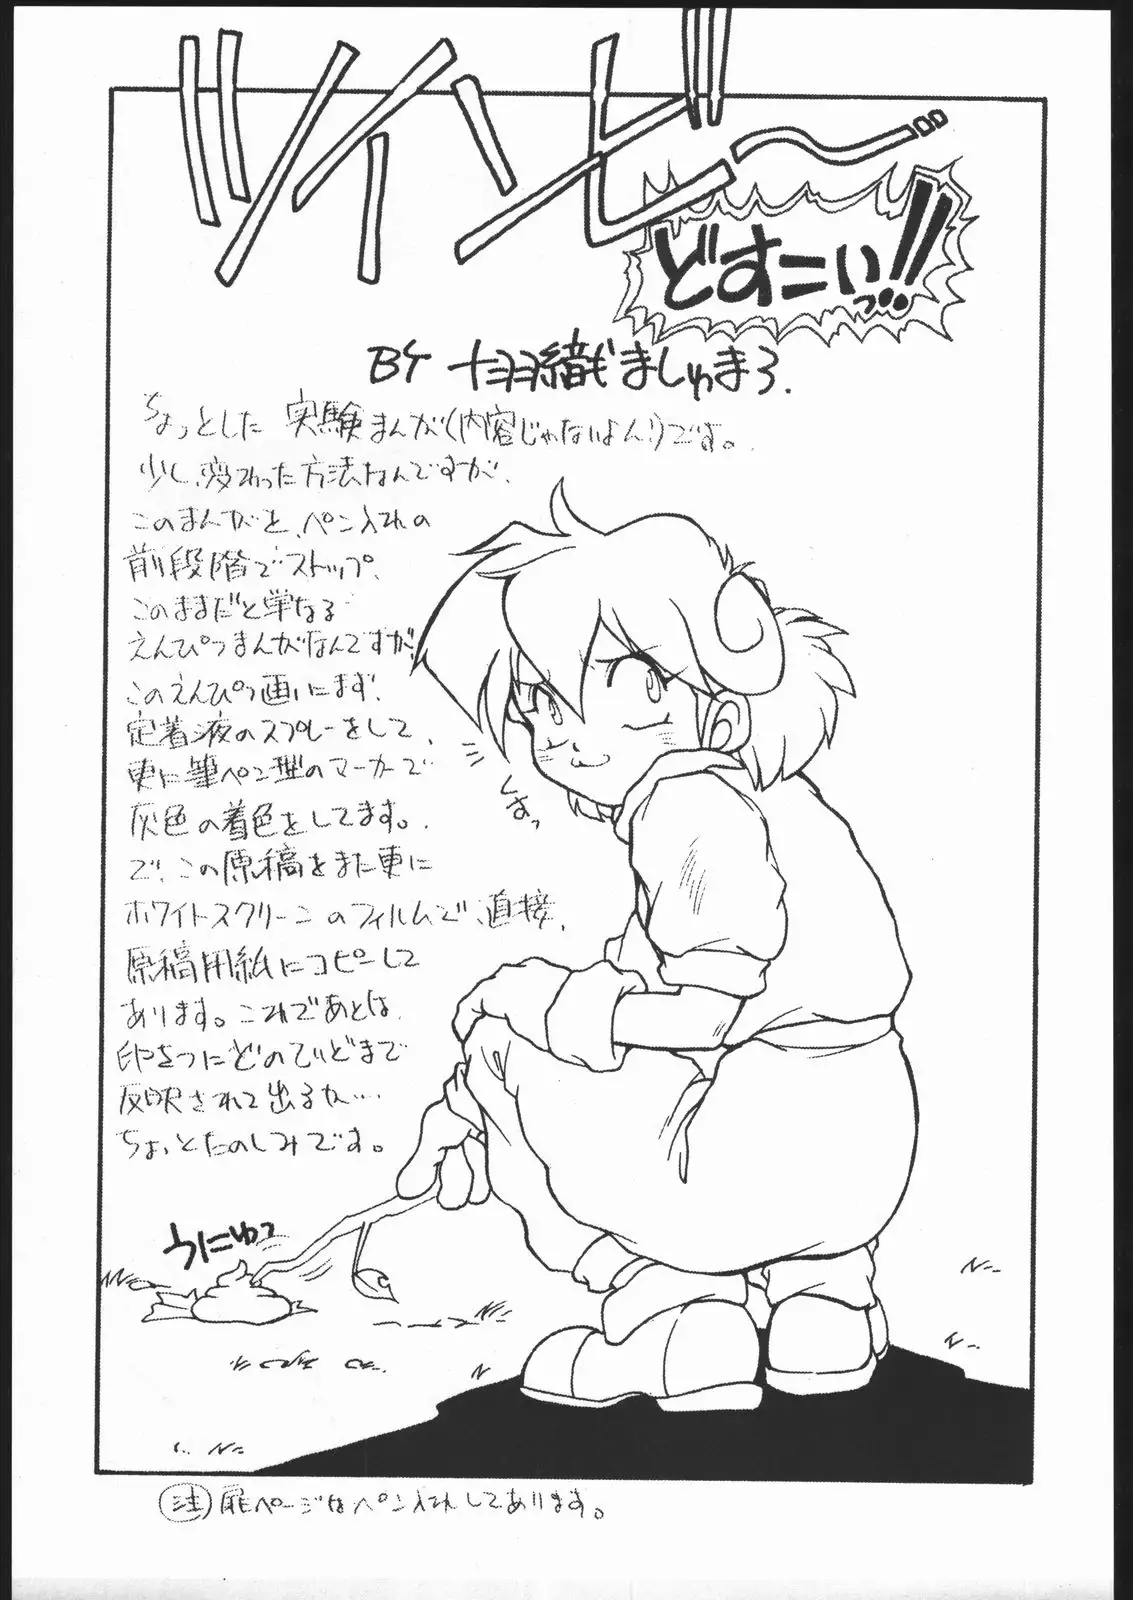 ツイヘビ〜
どすこいっ!!
BY 十羽織ましゅまろ.
ちょっとした 実験まんが(内容じゃないよん!)です。
少し、変わった方法なんですが、
このまんがと、ペン入れの
前段階でストップ、
このままだと単なる
えんぴつまんがなんですが、
このえんぴつ画にまず、
定着液のスプレーをして、
更に筆ペン型のマーカーで
灰色の着色をしてます。
で、この原稿をまた更に
ホワイトスクリーンのフィルムで、直接、
原稿用紙にコピーして
あります。これであとは、
印をつにどのていどまで
反映されて出るか…
ちょっとたのしみです。
じまっ
うにゅっ
注 扉ページはペン入れしてあります。